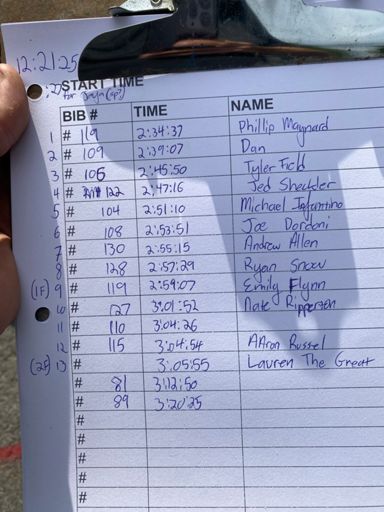 12:21:25
START TIME
BIB # TIME NAME
1 # 119 2:34:37 Phillip Maynard
2 # 109 2:39:07 Dan
3 # 106 2:45:50 Tyler
4 # 122 2:47:16 Jed Shechler
5 # 104 2:51:10 Michael Infantino
6 # 108 2:53:51 Joe Dordoni
7 # 130 2:55:15 Andrew Allen
8 # 128 2:57:29 Ryan Snow
(1F) 9 # 119 2:59:07 Emily Flynn
10 # 127 3:01:52 Nate Ripperson
11 # 110 3:04:26
12 # 115 3:04:54 AAron Russel
(2F) 13 # 3:05:55 Lauren The Great
# 81 3:12:50
# 89 3:20:25
#
#
#
#
#